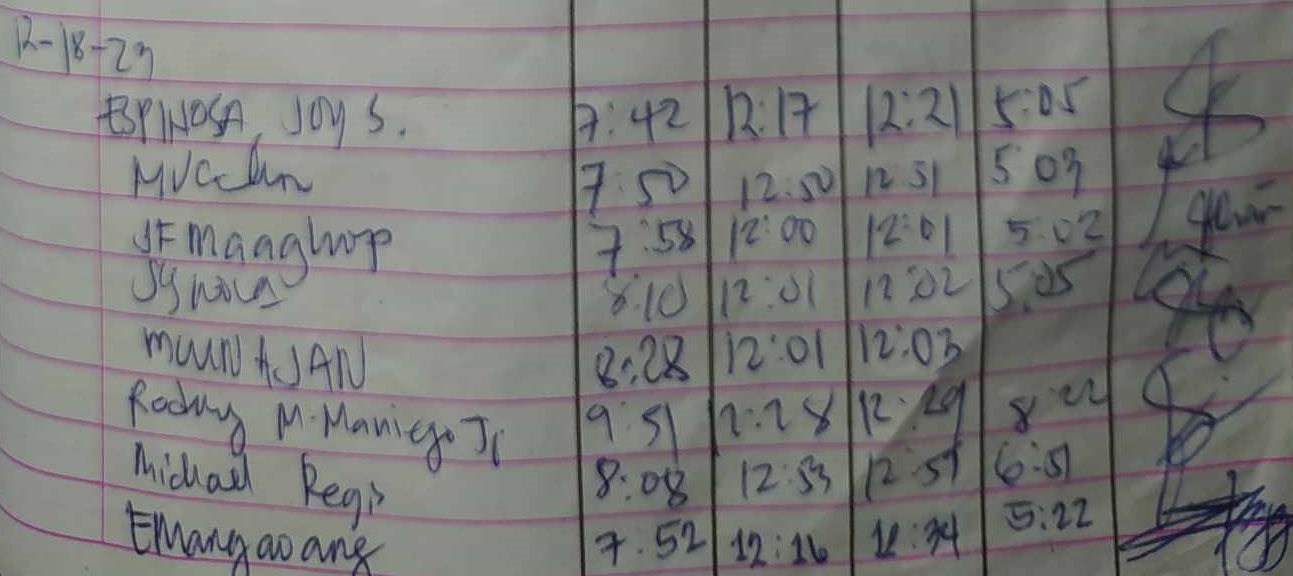 12-18-23
ESPINOSA, JOY S. 7:42 12:17 12:21 5:05
7:50 12:50 12:51 5:03
JFmaaghop 7:58 12:00 12:01 5:02
8:10 12:01 12:02 5:05
8:28 12:01 12:03
Rodny M. Maniego Jr 9:51 12:28 12:29 8:22
Michael Regis 8:08 12:53 6:51
EMangaoang 7:52 12:16 5:22